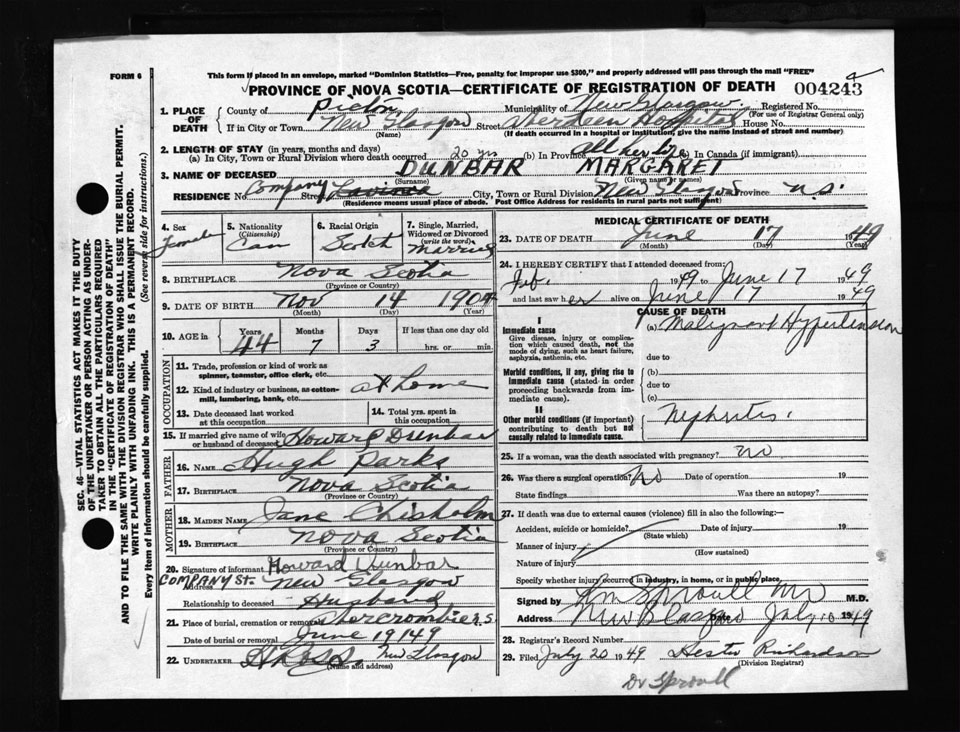 FORM 6
This form if placed in an envelope, marked "Dominion Statistics—Free, penalty for improper use $300," and properly addressed will pass through the mail "FREE"
PROVINCE OF NOVA SCOTIA—CERTIFICATE OF REGISTRATION OF DEATH 004243
1. PLACE OF DEATH
County of Pictou Municipality of New Glasgow Registered No.
(For use of Registrar General only)
If in City or Town New Glasgow Street Aberdeen Hospital House No.
(Name) (If death occurred in a hospital or institution, give the name instead of street and number)
2. LENGTH OF STAY (in years, months and days)
(a) In City, Town or Rural Division where death occurred 20 yrs (b) In Province all her life (c) In Canada (if immigrant)
3. NAME OF DECEASED DUNBAR MARGARET
(Surname) (Given name or names)
RESIDENCE No. Company Street City, Town or Rural Division New Glasgow Province N.S.
(Residence means usual place of abode. Post Office Address for residents in rural parts not sufficient)
4. Sex Female
5. Nationality (Citizenship) Can
6. Racial Origin Scotch
7. Single, Married, Widowed or Divorced (write the word) Married
8. BIRTHPLACE Nova Scotia
(Province or Country)
9. DATE OF BIRTH Nov 14 1904
(Month) (Day) (Year)
10. AGE in Years Months Days If less than one day old
44 7 3 hrs. or min.
OCCUPATION
11. Trade, profession or kind of work as spinner, teamster, office clerk, etc.
12. Kind of industry or business, as cotton-mill, lumbering, bank, etc. at home
13. Date deceased last worked at this occupation
14. Total yrs. spent in this occupation
15. If married give name of wife or husband of deceased Howard Dunbar
FATHER
16. NAME Hugh Parks
17. BIRTHPLACE Nova Scotia
(Province or Country)
MOTHER
18. MAIDEN NAME Jane Chisholm
19. BIRTHPLACE Nova Scotia
(Province or Country)
20. Signature of informant Howard Dunbar
COMPANY St. Address New Glasgow
Relationship to deceased Husband
21. Place of burial, cremation or removal Abercrombie N.S.
Date of burial or removal June 19 1949
22. UNDERTAKER New Glasgow
(Name and address)
MEDICAL CERTIFICATE OF DEATH
23. DATE OF DEATH June 17 1949
(Month) (Day) (Year)
24. I HEREBY CERTIFY that I attended deceased from:
Feb. 1949 to June 17 1949
and last saw her alive on June 17 1949
CAUSE OF DEATH
I
Immediate cause (a) Malignant Hypertension
Give disease, injury or complication which caused death, not the mode of dying, such as heart failure, asphyxia, asthenia, etc.
due to
Morbid conditions, if any, giving rise to immediate cause (stated in order proceeding backwards from immediate cause).
(b)
due to
(c)
II
Other morbid conditions (if important) contributing to death but not causally related to immediate cause.
Nephritis.
25. If a woman, was the death associated with pregnancy? no
26. Was there a surgical operation? No Date of operation 19
State findings Was there an autopsy?
27. If death was due to external causes (violence) fill in also the following:—
Accident, suicide or homicide? Date of injury 19
(State which)
Manner of injury
(How sustained)
Nature of injury
Specify whether injury occurred in industry, in home, or in public place.
Signed by Sproull MD M.D.
Address New Glasgow Date July 10 1949
28. Registrar's Record Number
29. Filed July 20 1949 Hester Richardson
(Division Registrar)
Dr Sproull
SEC. 46—VITAL STATISTICS ACT MAKES IT THE DUTY
OF THE UNDERTAKER OR PERSON ACTING AS UNDER-
TAKER TO OBTAIN ALL THE PARTICULARS REQUIRED
IN THE "CERTIFICATE OF REGISTRATION OF DEATH"
AND TO FILE THE SAME WITH THE DIVISION REGISTRAR WHO SHALL ISSUE THE BURIAL PERMIT.
WRITE PLAINLY WITH UNFADING INK. THIS IS A PERMANENT RECORD.
Every item of information should be carefully supplied. (See reverse side for instructions.)